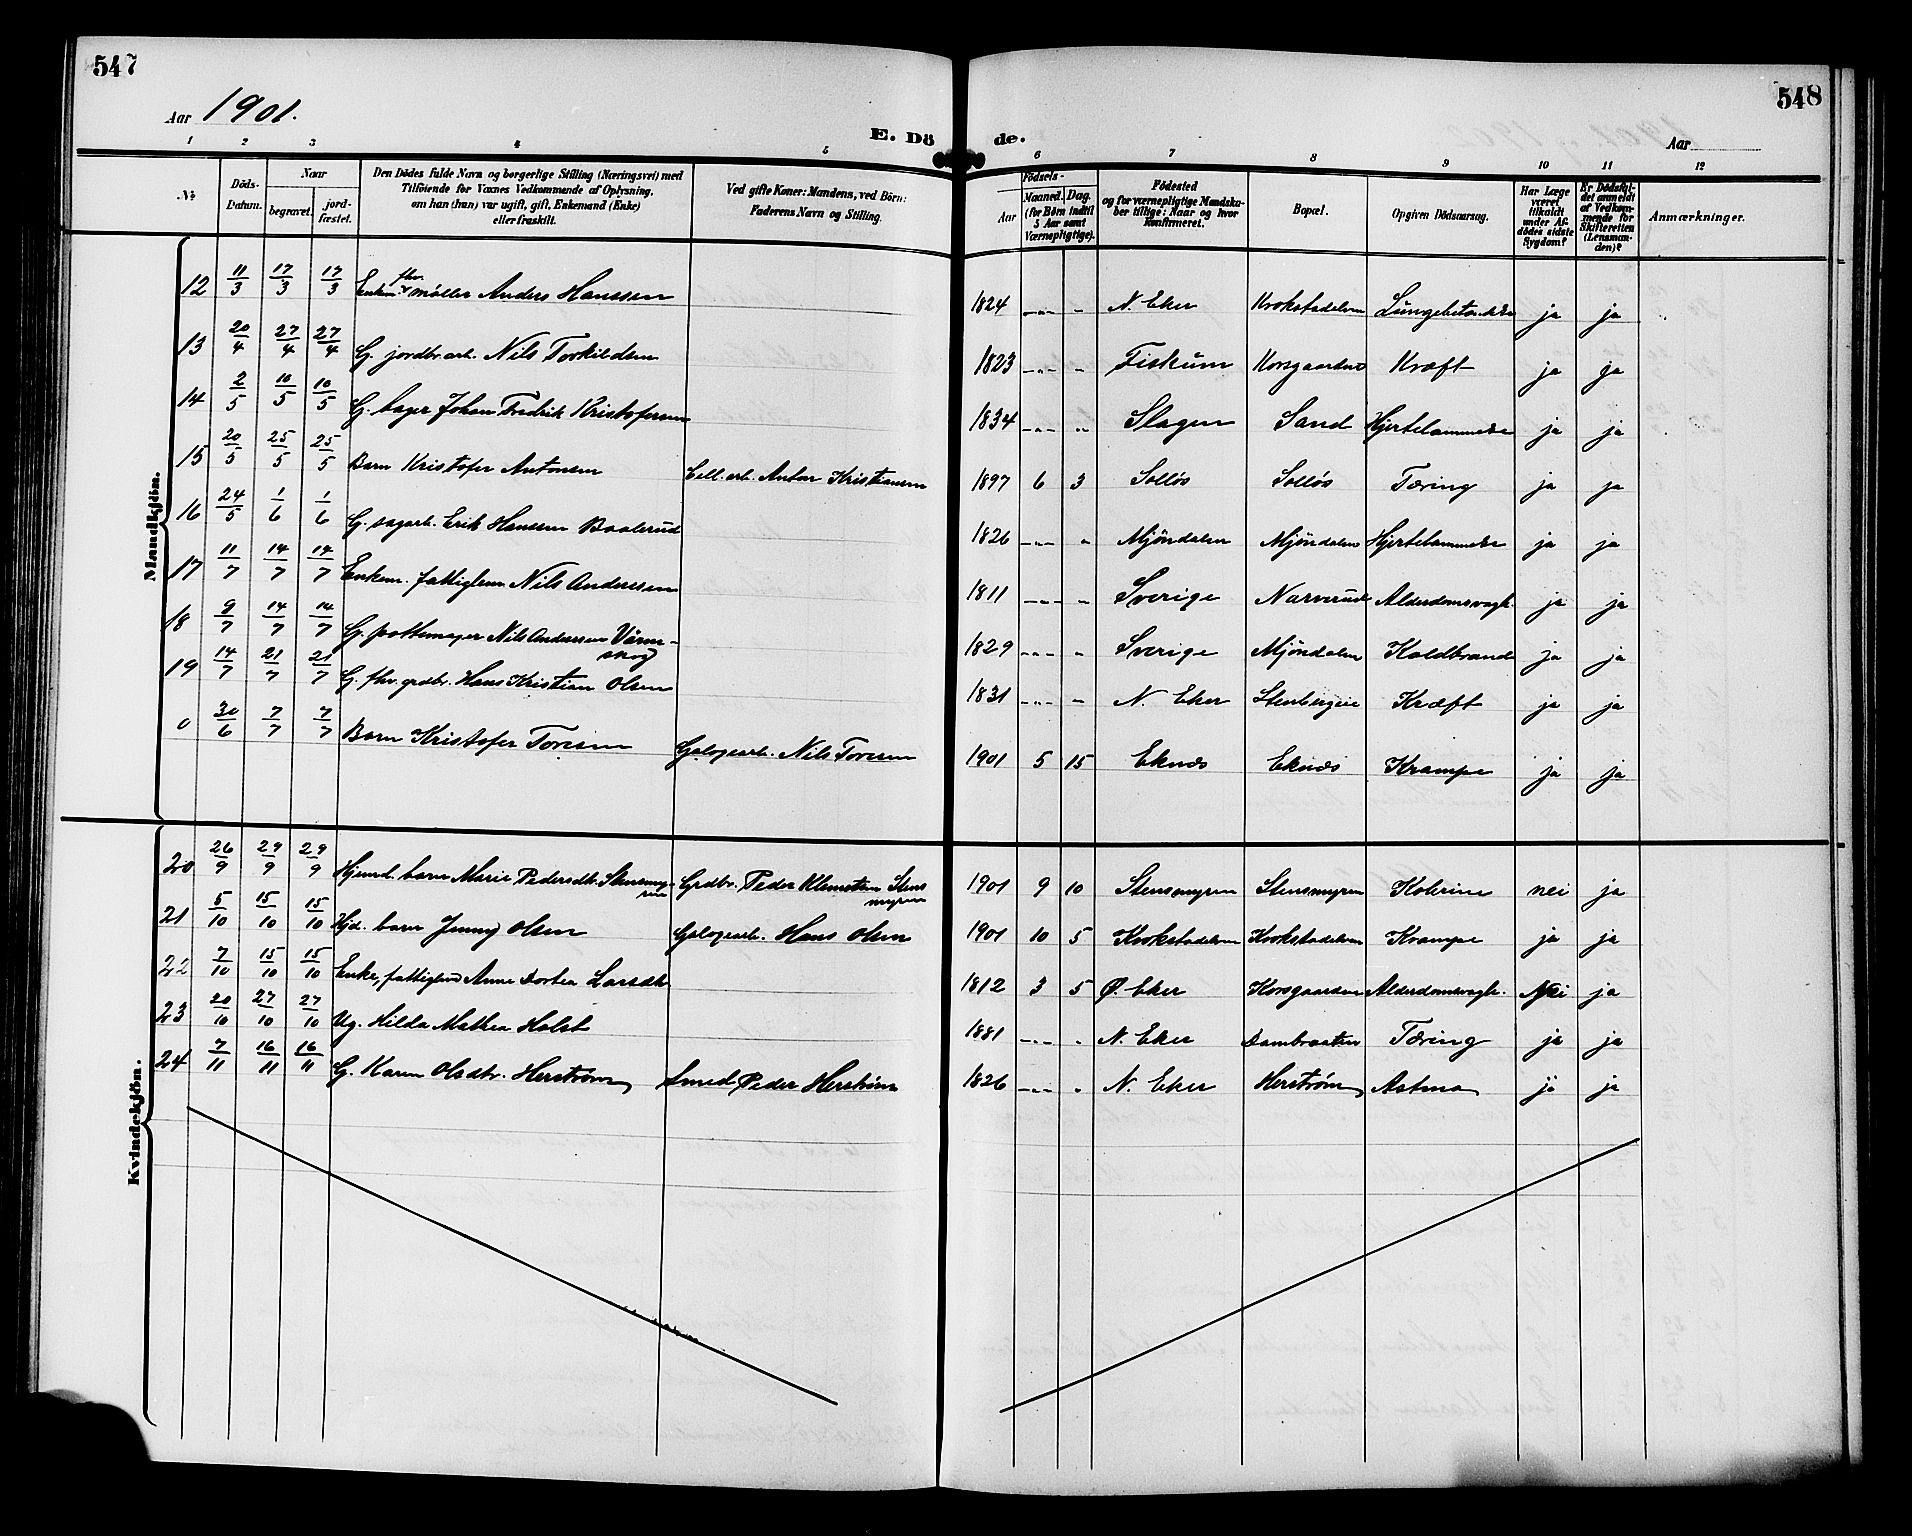 547
548
Aar 1901.
E. Dö de.
Aar
1 2 3 4 5 6 7 8 9 10 11 12
No.
Döds-Datum.
Naar
begravet.
jord-fæstet.
Den Dödes fulde Navn og borgerlige Stilling (Næringsvei) med
Tilföiende for Voxnes Vedkommende af Oplysning,
om han (hun) var ugift, gift, Enkemand (Enke)
eller fraskilt.
Ved gifte Koner: Mandens, ved Börn:
Faderens Navn og Stilling.
Födsels-
Aar
Maaned. Dag.
(for Börn indtil
5 Aar samt
Værnepligtige).
Födested
og for værnepligtige Mandska-
ber tillige: Naar og hvor
Konfirmeret.
Bopæl.
Opgiven Dödsaarsag.
Har Læge
været
tilkaldt
under Af-
dödes sidste
Sygdom?
Er Dödsfal-
det anmeldt
af Vedkom-
mende for
Skifteretten
(Lensman-
den)?
Anmærkninger.
Mandkjön.
12 11/3 17/3 17/3 Enkem. fhv. möller Anders Hanssen 1824 N. Eker Krokstadelven Lungebetændelse ja ja
13 20/4 27/4 27/4 G. jordbr.arb. Nils Torkildsen 1823 Fiskum Korsgaarden Kræft ja ja
14 2/5 10/5 10/5 G. bager Johan Fredrik Kristofersen 1834 Slagen Sand Hjertelammelse ja ja
15 20/5 25/5 25/5 Barn Kristofer Antonsen Cell. arb. Anton Kristiansen 1897 6 3 Solløs Solløs Tæring ja ja
16 24/5 1/6 1/6 G. sagarb. Erik Hanssen Baalerud 1826 Mjöndalen Mjöndalen Hjertelammelse ja ja
17 11/7 14/7 14/7 Enkem. fattiglem Nils Anderssen 1811 Sverige Narverud Alderdomssvagh. ja ja
18 9/7 14/7 14/7 G. pottemager Nils Anderssen Värm-
skog 1829 Sverige Mjöndalen Koldbrand ja ja
19 14/7 21/7 21/7 G. fhv. grdbr. Hans Kristian Olsen 1831 N. Eker Stenbergeie Kræft ja ja
0 30/6 7/7 7/7 Barn Kristofer Toresen Galogearb. Nils Toresen 1901 5 15 Eknæs Eknæs Krampe ja ja
Kvindekjön.
20 26/9 29/9 29/9 Hjemd. barn Marie Pedersdtr. Stensmy-
ren Grdbr. Peder Klemetsen Stens
myren 1901 9 10 Stensmyren Stensmyren Kolerine nei ja
21 5/10 15/10 15/10 Hjd. barn Jenny Olsen Galogearb. Hans Olsen 1901 10 5 Krokstadelven Krokstadelven Krampe ja ja
22 7/10 15/10 15/10 Enke, fattiglem Anne Dortea Larsdtr. 1812 3 5 Ø. Eker Korsgaarden Alderdomssvagh. Nei ja
23 20/10 27/10 27/10 Ug. Hilda Mathea Holst 1881 N. Eker Dambraaten Tæring ja ja
24 7/11 16/11 16/11 G. Karen Olsdtr. Herstrøm Smed Peder Herstrøm 1826 N. Eker Herstrøm Astma ja ja